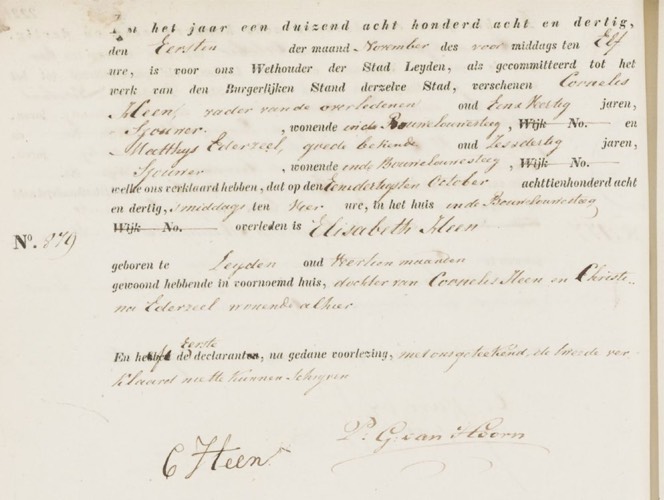 In het jaar een duizend acht honderd acht en dertig,
den Eersten der maand November des voor middags ten Elf
ure, is voor ons Wethouder der Stad Leyden, als gecommitteerd tot het
werk van den Burgerlijken Stand derzelve Stad, verschenen Cornelis
Heen, vader van de overledenen oud Eene Veertig jaren,
Spouner , wonende in de Bouwelounesteeg , Wijk No. en
Matthys Ederzeel, goede bekende oud Zessdertig jaren,
Spouner , wonende in de Bouwelounesteeg , Wijk No.
welke ons verklaard hebben, dat op den Eenendertigsten October achttienhonderd acht
en dertig, smiddags ten Vier ure, in het huis in de Bouwelounesteeg
Wijk No. overleden is Elisabeth Heen
No. 879
geboren te Leyden oud Veertien maanden
gewoond hebbende in voornoemd huis, dochter van Cornelis Heen en Christi„
na Ederzeel wonende alhier
eerste
En heeft de declaranten, na gedane voorlezing, met ons geteekend, de tweede ver„
klaarde niet te kunnen schryven
P. G. van Hoorn
C Heen